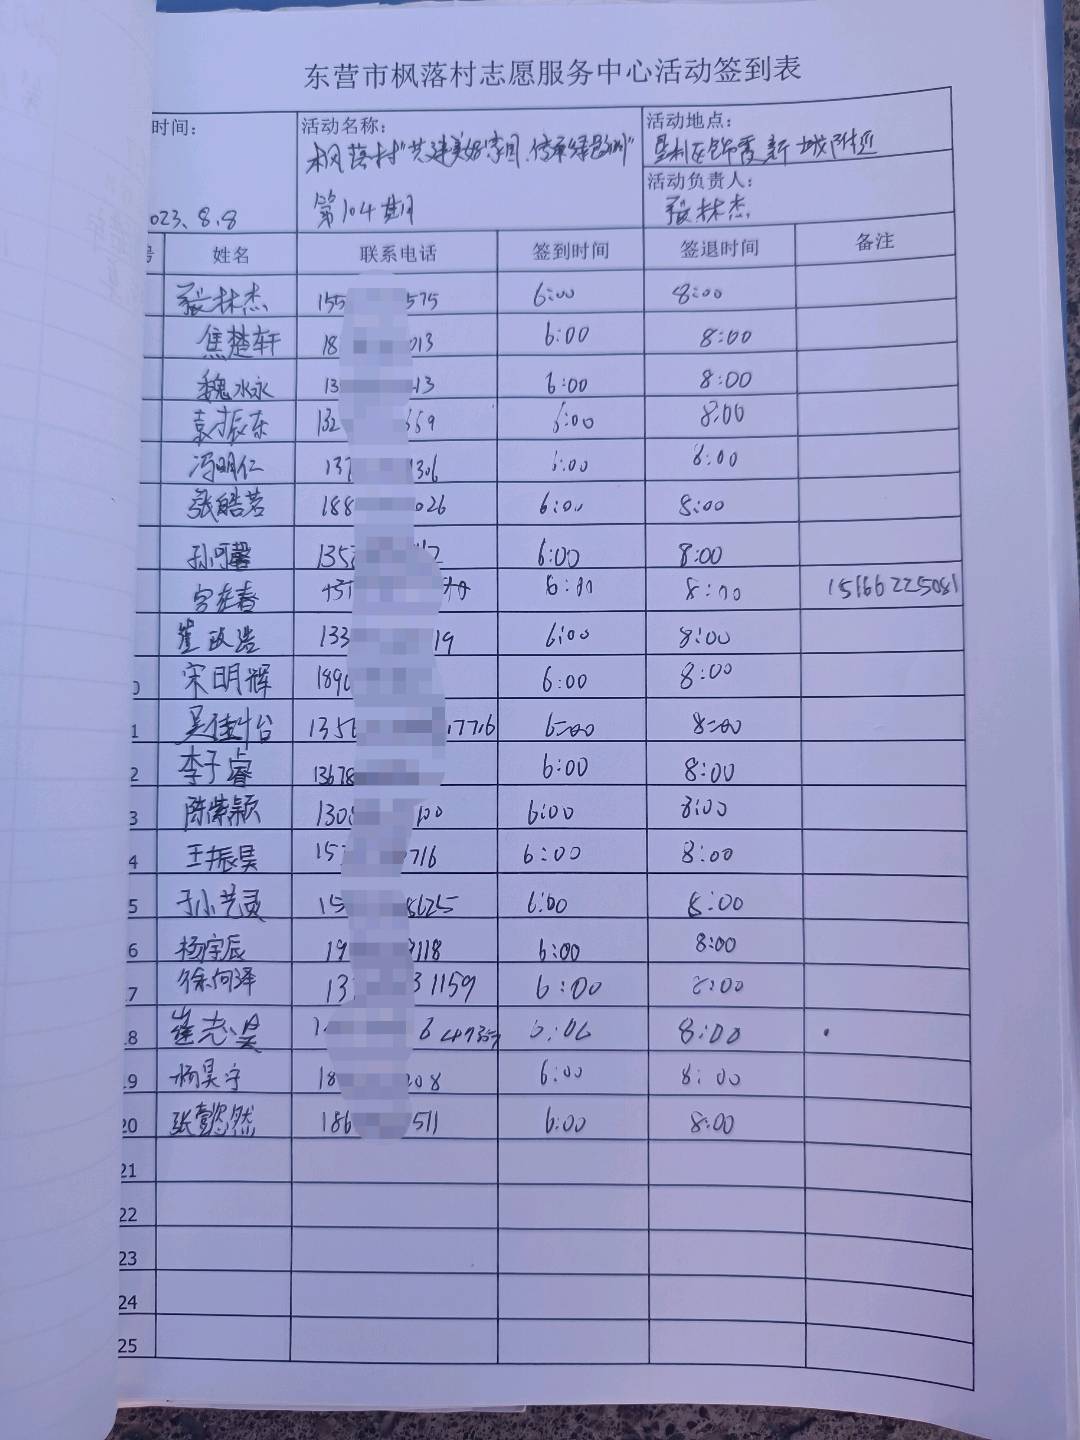 东营市枫落村志愿服务中心活动签到表
时间:
023、8、8
活动名称:
枫落村"共建美好家园、传承绿色
第104期
活动地点:
垦利区 新城附近
活动负责人:
张林杰
号 姓名 联系电话 签到时间 签退时间 备注
张林杰 155 575 6:00 8:00
焦楚轩 18 013 6:00 8:00
魏水永 13 13 6:00 8:00
袁振东 132 669 6:00 8:00
冯明仁 137 306 6:00 8:00
张皓茗 188 026 6:00 8:00
孙可馨 135 2 6:00 8:00
宫在春 6:00 8:00 15166225081
崔政浩 133 19 6:00 8:00
0 宋明辉 189 6:00 8:00
1 吴佳怡 1356 7716 6:00 8:00
2 李子睿 13678 6:00 8:00
3 陈紫颖 130 100 6:00 8:00
4 王振昊 15 716 6:00 8:00
5 于小艺灵 15 5625 6:00 8:00
6 杨宇辰 19 118 6:00 8:00
7 徐何泽 13 31159 6:00 8:00
8 崔志昊 1 6 47357 6:06 8:00
19 杨昊宇 18 208 6:00 8:00
20 张懿然 186 511 6:00 8:00
21
22
23
24
25